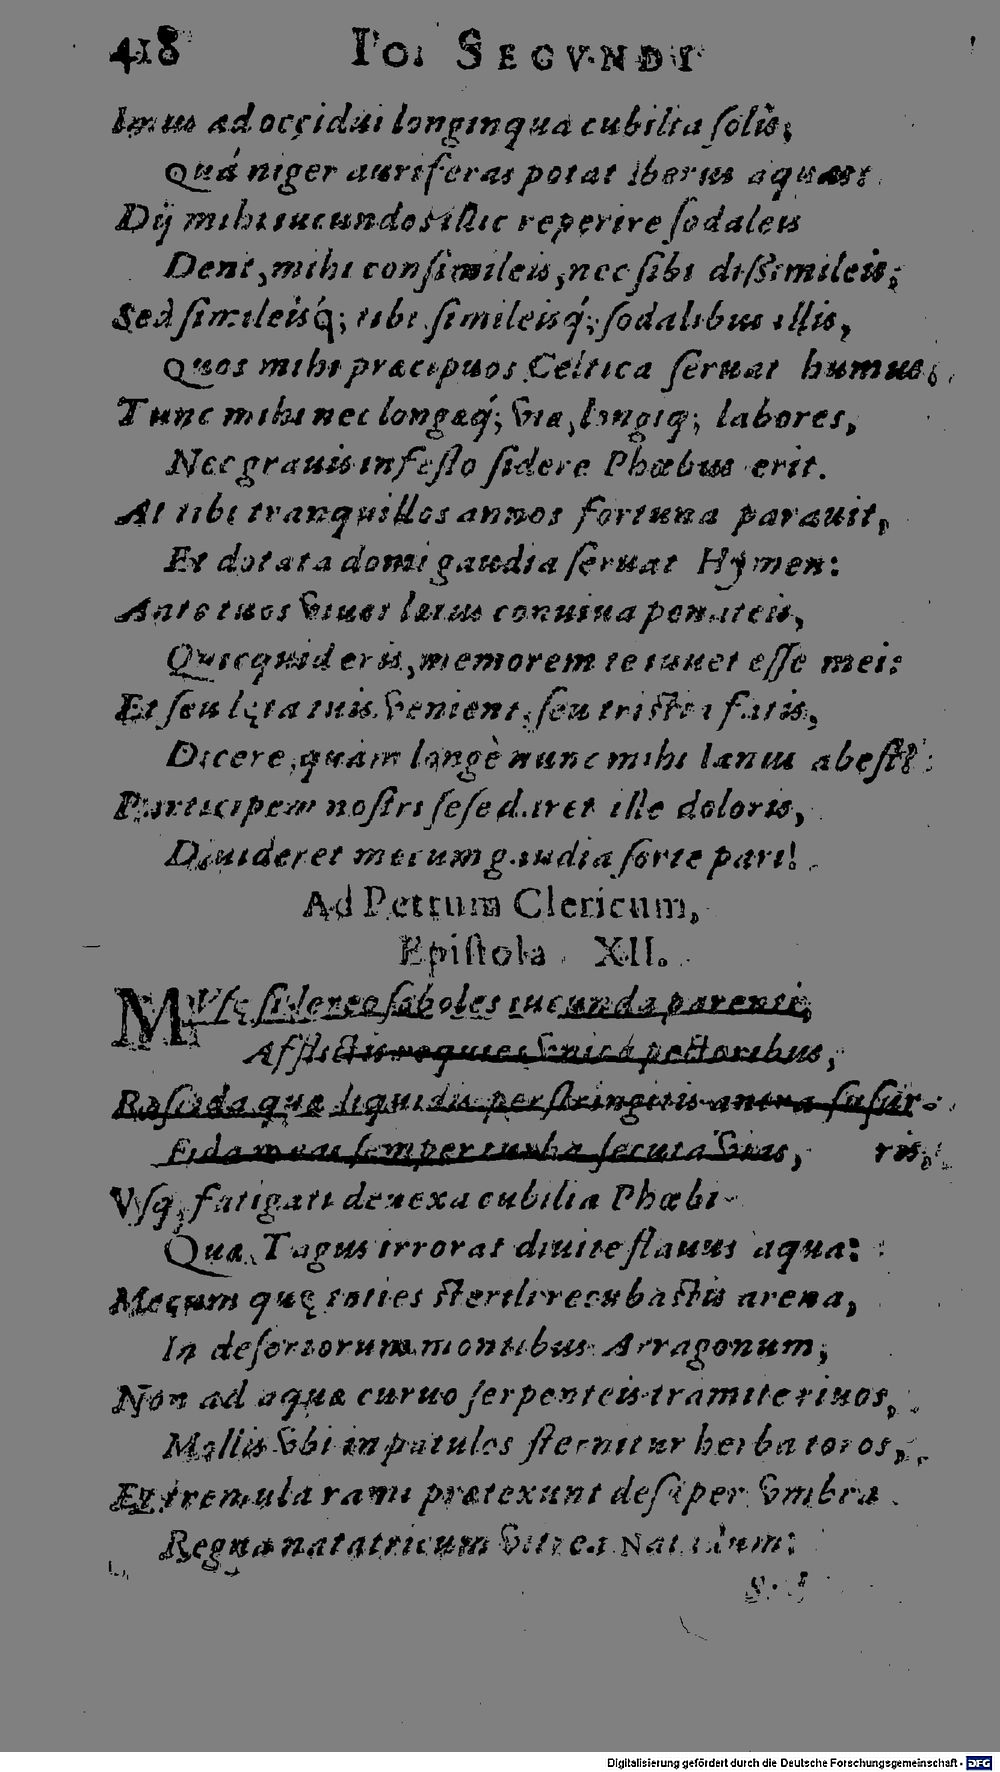 418 Io. Secvndi
Imus ad occidui longinqua cubilia ſolis,
Quá niger auriferas potat Iberus aquas:
Dij mihi iucundos illic reperire ſodaleis
Dent, mihi conſimileis, nec ſibi diſſimileis;
Sed ſimileisq́; tibi ſimileisq́; ſodalibus illis,
Quos mihi præcipuos Celtica ſeruat humus,
Tunc mihi nec longæq́; via, longiq; labores,
Nec grauis infeſto ſidere Phœbus erit.
At tibi tranquillos annos fortuna parauit,
Et dotata domi gaudia ſeruat Hymen:
Ante tuos viuet lætus conuiua penateis,
Quicquid eris, memorem te iuuet eſſe mei:
Et ſeu lęta tuis venient, ſeu triſtia fatis,
Dicere, quàm longè nunc mihi Ianus abeſt!
Participem noſtri ſeſe daret ille doloris,
Diuideret mecum gaudia ſorte pari!
Ad Petrum Clericum,
Epiſtola XII.
MVſę ſidereo ſoboles iucunda parenti,
Afflictis requies vnica pectoribus,
Roſcida quæ liquidis perſtringitis antra ſuſur-
Fida meas ſemper turba ſecuta vias, ris,
Vſq; fatigati deuexa cubilia Phœbi
Qua Tagus irrorat diuite flauus aqua:
Mecum quę toties ſterili recubaſtis arena,
In deſertorum montibus Arragonum,
Non ad aquæ curuo ſerpenteis tramite riuos,
Mollis vbi in patulos ſternitur herba toros,
Et tremula rami prætexunt deſuper vmbra
Regna natatricum vitrea Naiadum: